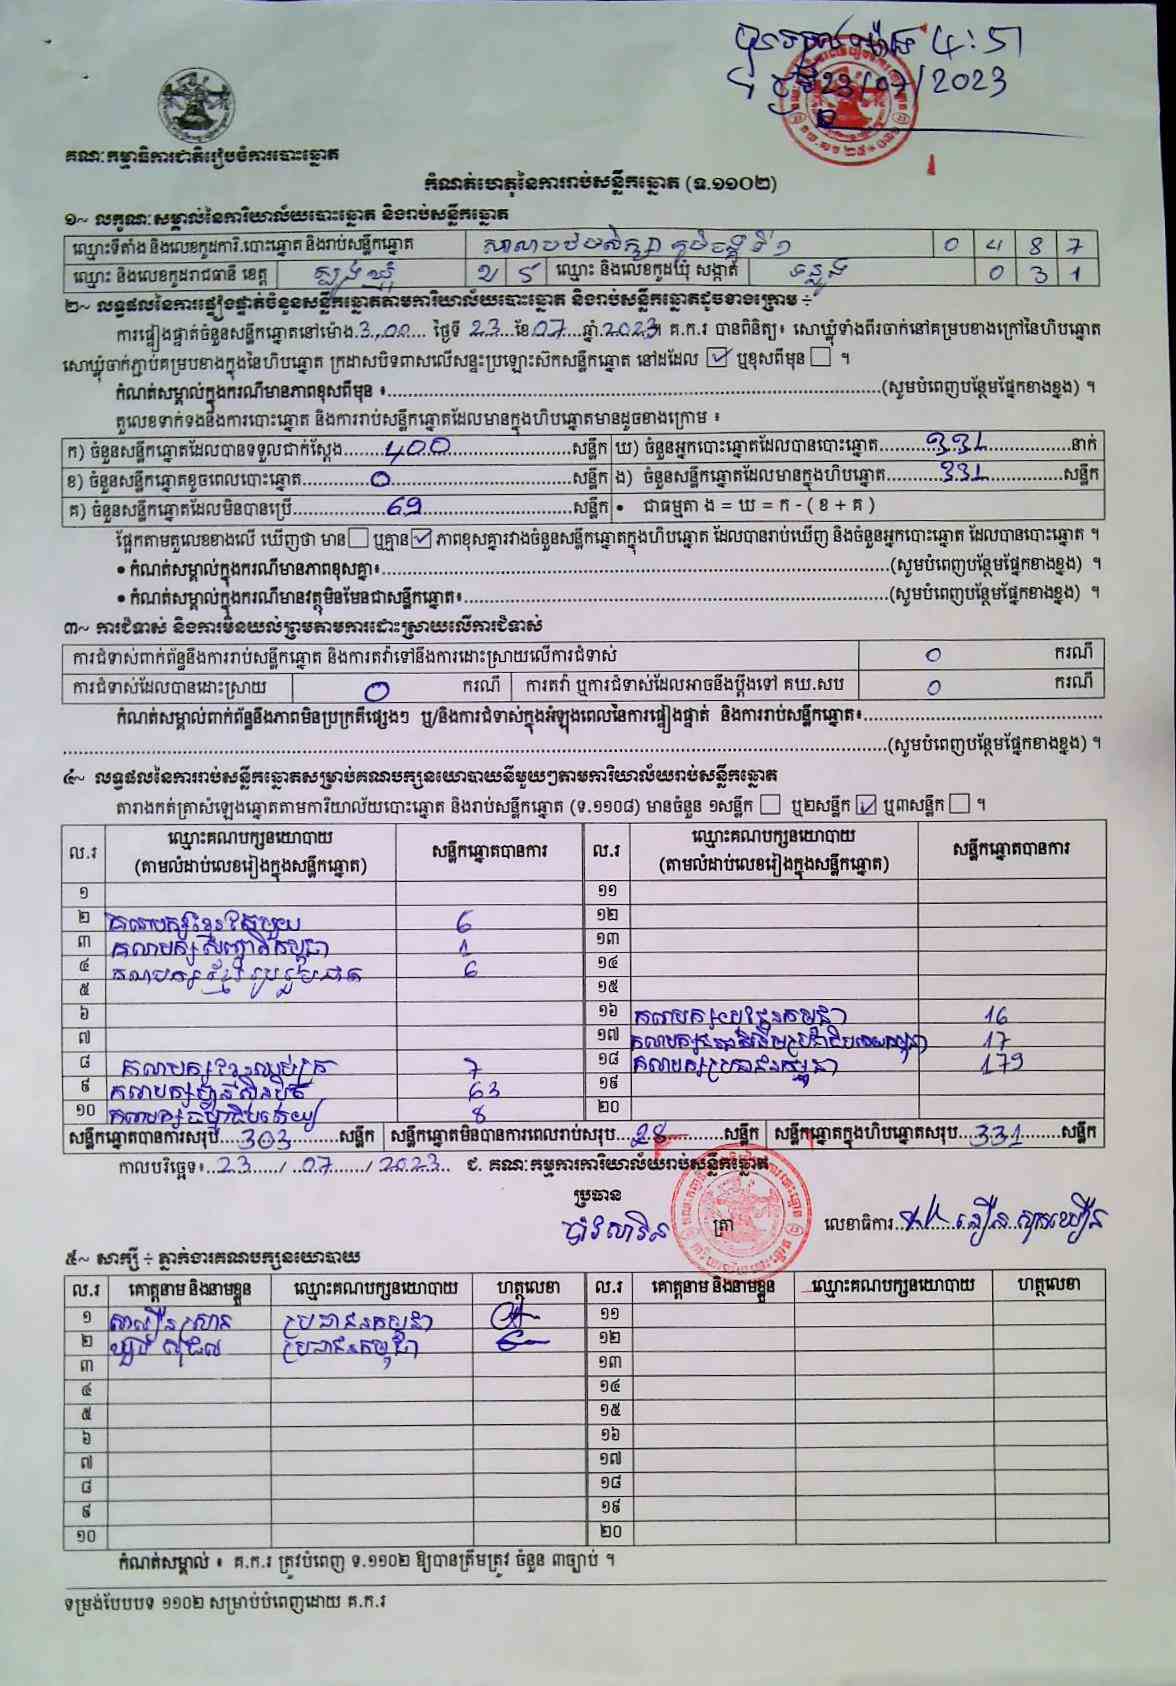 ម៉ោង 4:51
23/07/2023
គណៈកម្មាធិការជាតិរៀបចំការបោះឆ្នោត
កំណត់ហេតុនៃការរាប់សន្លឹកឆ្នោត (ទ.១១០២)
១~ លក្ខណៈសម្គាល់នៃការិយាល័យបោះឆ្នោត និងរាប់សន្លឹកឆ្នោត
ឈ្មោះទីតាំង និងលេខកូដការិ.បោះឆ្នោត និងរាប់សន្លឹកឆ្នោត សាលាបឋមសិក្សា 0 4 8 7
ឈ្មោះ និងលេខកូដរាជធានី ខេត្ត ត្បូងឃ្មុំ 2 5 ឈ្មោះ និងលេខកូដឃុំ សង្កាត់ ទន្លូង 0 3 1
២~ លទ្ធផលនៃការផ្ទៀងផ្ទាត់ចំនួនសន្លឹកឆ្នោតតាមការិយាល័យបោះឆ្នោត និងរាប់សន្លឹកឆ្នោតដូចខាងក្រោម ÷
ការផ្ទៀងផ្ទាត់ចំនួនសន្លឹកឆ្នោតនៅម៉ោង 3,00 ថ្ងៃទី 23 ខែ 07 ឆ្នាំ 2023 គ.ក.រ បានពិនិត្យ៖ សោឃ្លុំទាំងពីរចាក់នៅគម្របខាងក្រៅនៃហិបឆ្នោត
សោឃ្លុំចាក់ភ្ជាប់គម្របខាងក្នុងនៃហិបឆ្នោត ក្រដាសបិទពាសលើសន្ទះប្រឡោះស៊កសន្លឹកឆ្នោត នៅដដែល ☑ ឬខុសពីមុន ☐ ។
កំណត់សម្គាល់ក្នុងករណីមានភាពខុសពីមុន ៖ (សូមបំពេញបន្ថែមផ្នែកខាងខ្នង) ។
តួលេខទាក់ទងនឹងការបោះឆ្នោត និងការរាប់សន្លឹកឆ្នោតដែលមានក្នុងហិបឆ្នោតមានដូចខាងក្រោម ៖
ក) ចំនួនសន្លឹកឆ្នោតដែលបានទទួលជាក់ស្តែង 400 សន្លឹក ឃ) ចំនួនអ្នកបោះឆ្នោតដែលបានបោះឆ្នោត 331 នាក់
ខ) ចំនួនសន្លឹកឆ្នោតខូចពេលបោះឆ្នោត 0 សន្លឹក ង) ចំនួនសន្លឹកឆ្នោតដែលមានក្នុងហិបឆ្នោត 331 សន្លឹក
គ) ចំនួនសន្លឹកឆ្នោតដែលមិនបានប្រើ 69 សន្លឹក • ជាធម្មតា ង = ឃ = ក - ( ខ + គ )
ផ្អែកតាមតួលេខខាងលើ ឃើញថា មាន ☐ ឬគ្មាន ☑ ភាពខុសគ្នារវាងចំនួនសន្លឹកឆ្នោតក្នុងហិបឆ្នោត ដែលបានរាប់ឃើញ និងចំនួនអ្នកបោះឆ្នោត ដែលបានបោះឆ្នោត ។
• កំណត់សម្គាល់ក្នុងករណីមានភាពខុសគ្នា៖ (សូមបំពេញបន្ថែមផ្នែកខាងខ្នង) ។
• កំណត់សម្គាល់ក្នុងករណីមានវត្ថុមិនមែនជាសន្លឹកឆ្នោត៖ (សូមបំពេញបន្ថែមផ្នែកខាងខ្នង) ។
៣~ ការជំទាស់ និងការមិនយល់ព្រមតាមការដោះស្រាយលើការជំទាស់
ការជំទាស់ពាក់ព័ន្ធនឹងការរាប់សន្លឹកឆ្នោត និងការតវ៉ាទៅនឹងការដោះស្រាយលើការជំទាស់ 0 ករណី
ការជំទាស់ដែលបានដោះស្រាយ 0 ករណី ការតវ៉ា ឬការជំទាស់ដែលអាចនឹងប្តឹងទៅ គឃ.សប 0 ករណី
កំណត់សម្គាល់ពាក់ព័ន្ធនឹងភាពមិនប្រក្រតីផ្សេងៗ ឬ/និងការជំទាស់ក្នុងអំឡុងពេលនៃការផ្ទៀងផ្ទាត់ និងការរាប់សន្លឹកឆ្នោត៖
(សូមបំពេញបន្ថែមផ្នែកខាងខ្នង) ។
៤~ លទ្ធផលនៃការរាប់សន្លឹកឆ្នោតសម្រាប់គណបក្សនយោបាយនីមួយៗតាមការិយាល័យរាប់សន្លឹកឆ្នោត
តារាងកត់ត្រាសំឡេងឆ្នោតតាមការិយាល័យបោះឆ្នោត និងរាប់សន្លឹកឆ្នោត (ទ.១១០៨) មានចំនួន ១សន្លឹក ☐ ឬ២សន្លឹក ☑ ឬ៣សន្លឹក ☐ ។
ល.រ ឈ្មោះគណបក្សនយោបាយ (តាមលំដាប់លេខរៀងក្នុងសន្លឹកឆ្នោត) សន្លឹកឆ្នោតបានការ ល.រ ឈ្មោះគណបក្សនយោបាយ (តាមលំដាប់លេខរៀងក្នុងសន្លឹកឆ្នោត) សន្លឹកឆ្នោតបានការ
១ ១១
២ គណបក្សខ្មែរតែមួយ 6 ១២
៣ គណបក្ស សញ្ជាតិកម្ពុជា 1 ១៣
៤ គណបក្សខ្មែររួបរួមជាតិ 6 ១៤
៥ ១៥
៦ ១៦ គណបក្សយុវជនកម្ពុជា 16
៧ ១៧ 17
៨ គណបក្ស 7 ១៨ គណបក្សប្រជាជនកម្ពុជា 179
៩ គណបក្សហ៊្វុនស៊ិនប៉ិច 63 ១៩
១០ គណបក្សធម្មាធិបតេយ្យ 8 ២០
សន្លឹកឆ្នោតបានការសរុប 303 សន្លឹក សន្លឹកឆ្នោតមិនបានការពេលរាប់សរុប 28 សន្លឹក សន្លឹកឆ្នោតក្នុងហិបឆ្នោតសរុប 331 សន្លឹក
កាលបរិច្ឆេទ៖ 23 / 07 / 2023 ជ. គណៈកម្មការការិយាល័យរាប់សន្លឹកឆ្នោត
ប្រធាន
ត្រា លេខាធិការ
៥~ សាក្សី ÷ ភ្នាក់ងារគណបក្សនយោបាយ
ល.រ គោត្តនាម និងនាមខ្លួន ឈ្មោះគណបក្សនយោបាយ ហត្ថលេខា ល.រ គោត្តនាម និងនាមខ្លួន ឈ្មោះគណបក្សនយោបាយ ហត្ថលេខា
១ ប្រជាជនកម្ពុជា ១១
២ ប្រជាជនកម្ពុជា ១២
៣ ១៣
៤ ១៤
៥ ១៥
៦ ១៦
៧ ១៧
៨ ១៨
៩ ១៩
១០ ២០
កំណត់សម្គាល់ ៖ គ.ក.រ ត្រូវបំពេញ ទ.១១០២ ឱ្យបានត្រឹមត្រូវ ចំនួន ៣ច្បាប់ ។
ទម្រង់បែបបទ ១១០២ សម្រាប់បំពេញដោយ គ.ក.រ